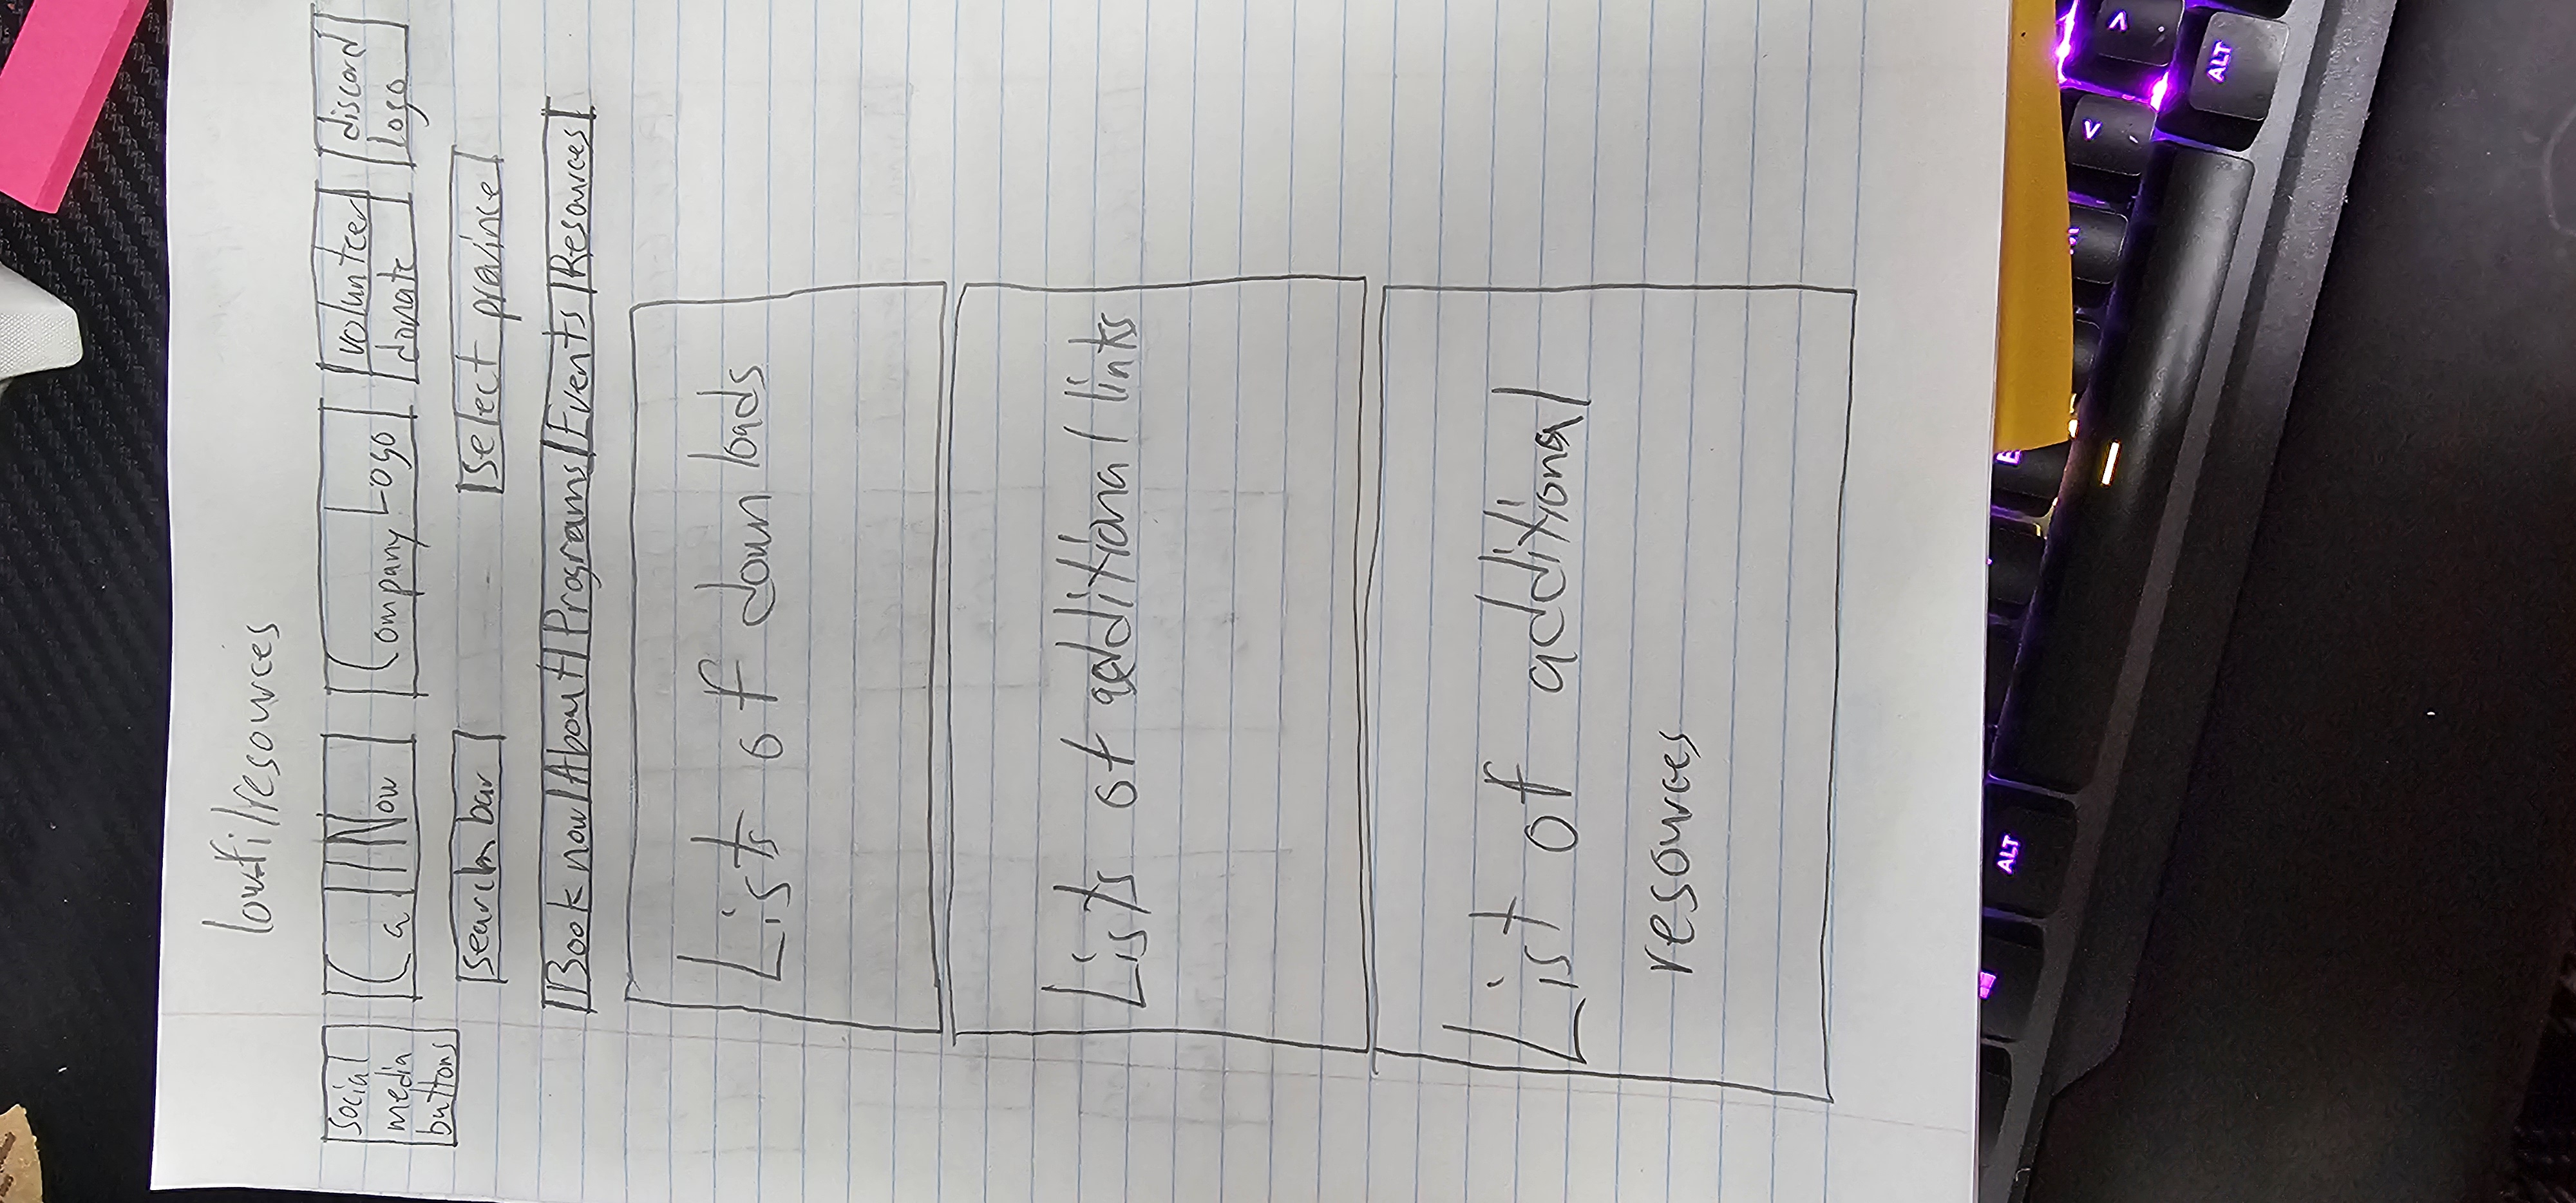 low-fi/resources
social media buttons
Call Now
Company Logo
volunteer
donate
discord logo
search bar
select province
Book now About Programs Events Resources
Lists of downloads
Lists of additional links
List of additional
resources
ALT
E
M
<
>
ALT